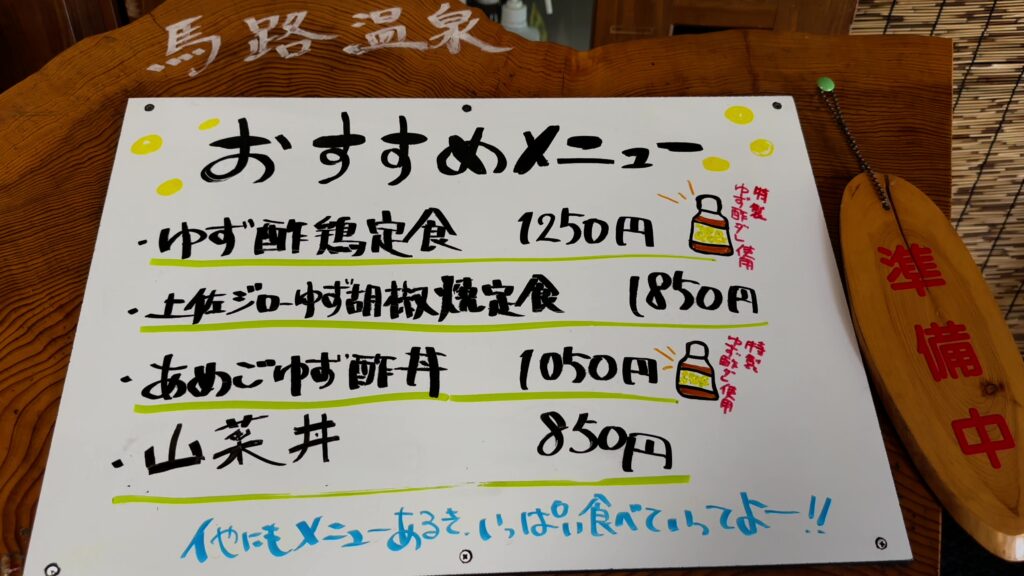 馬路温泉
おすすめメニュー
・ゆず酢鶏定食 1250円
特製
ゆず酢ダレ使用
・土佐ジローゆず胡椒焼定食 1850円
・あめごゆず酢丼 1050円
特製
ゆず酢ダレ使用
・山菜丼 850円
他にもメニューあるき、いっぱい食べていってよー!!
準備中